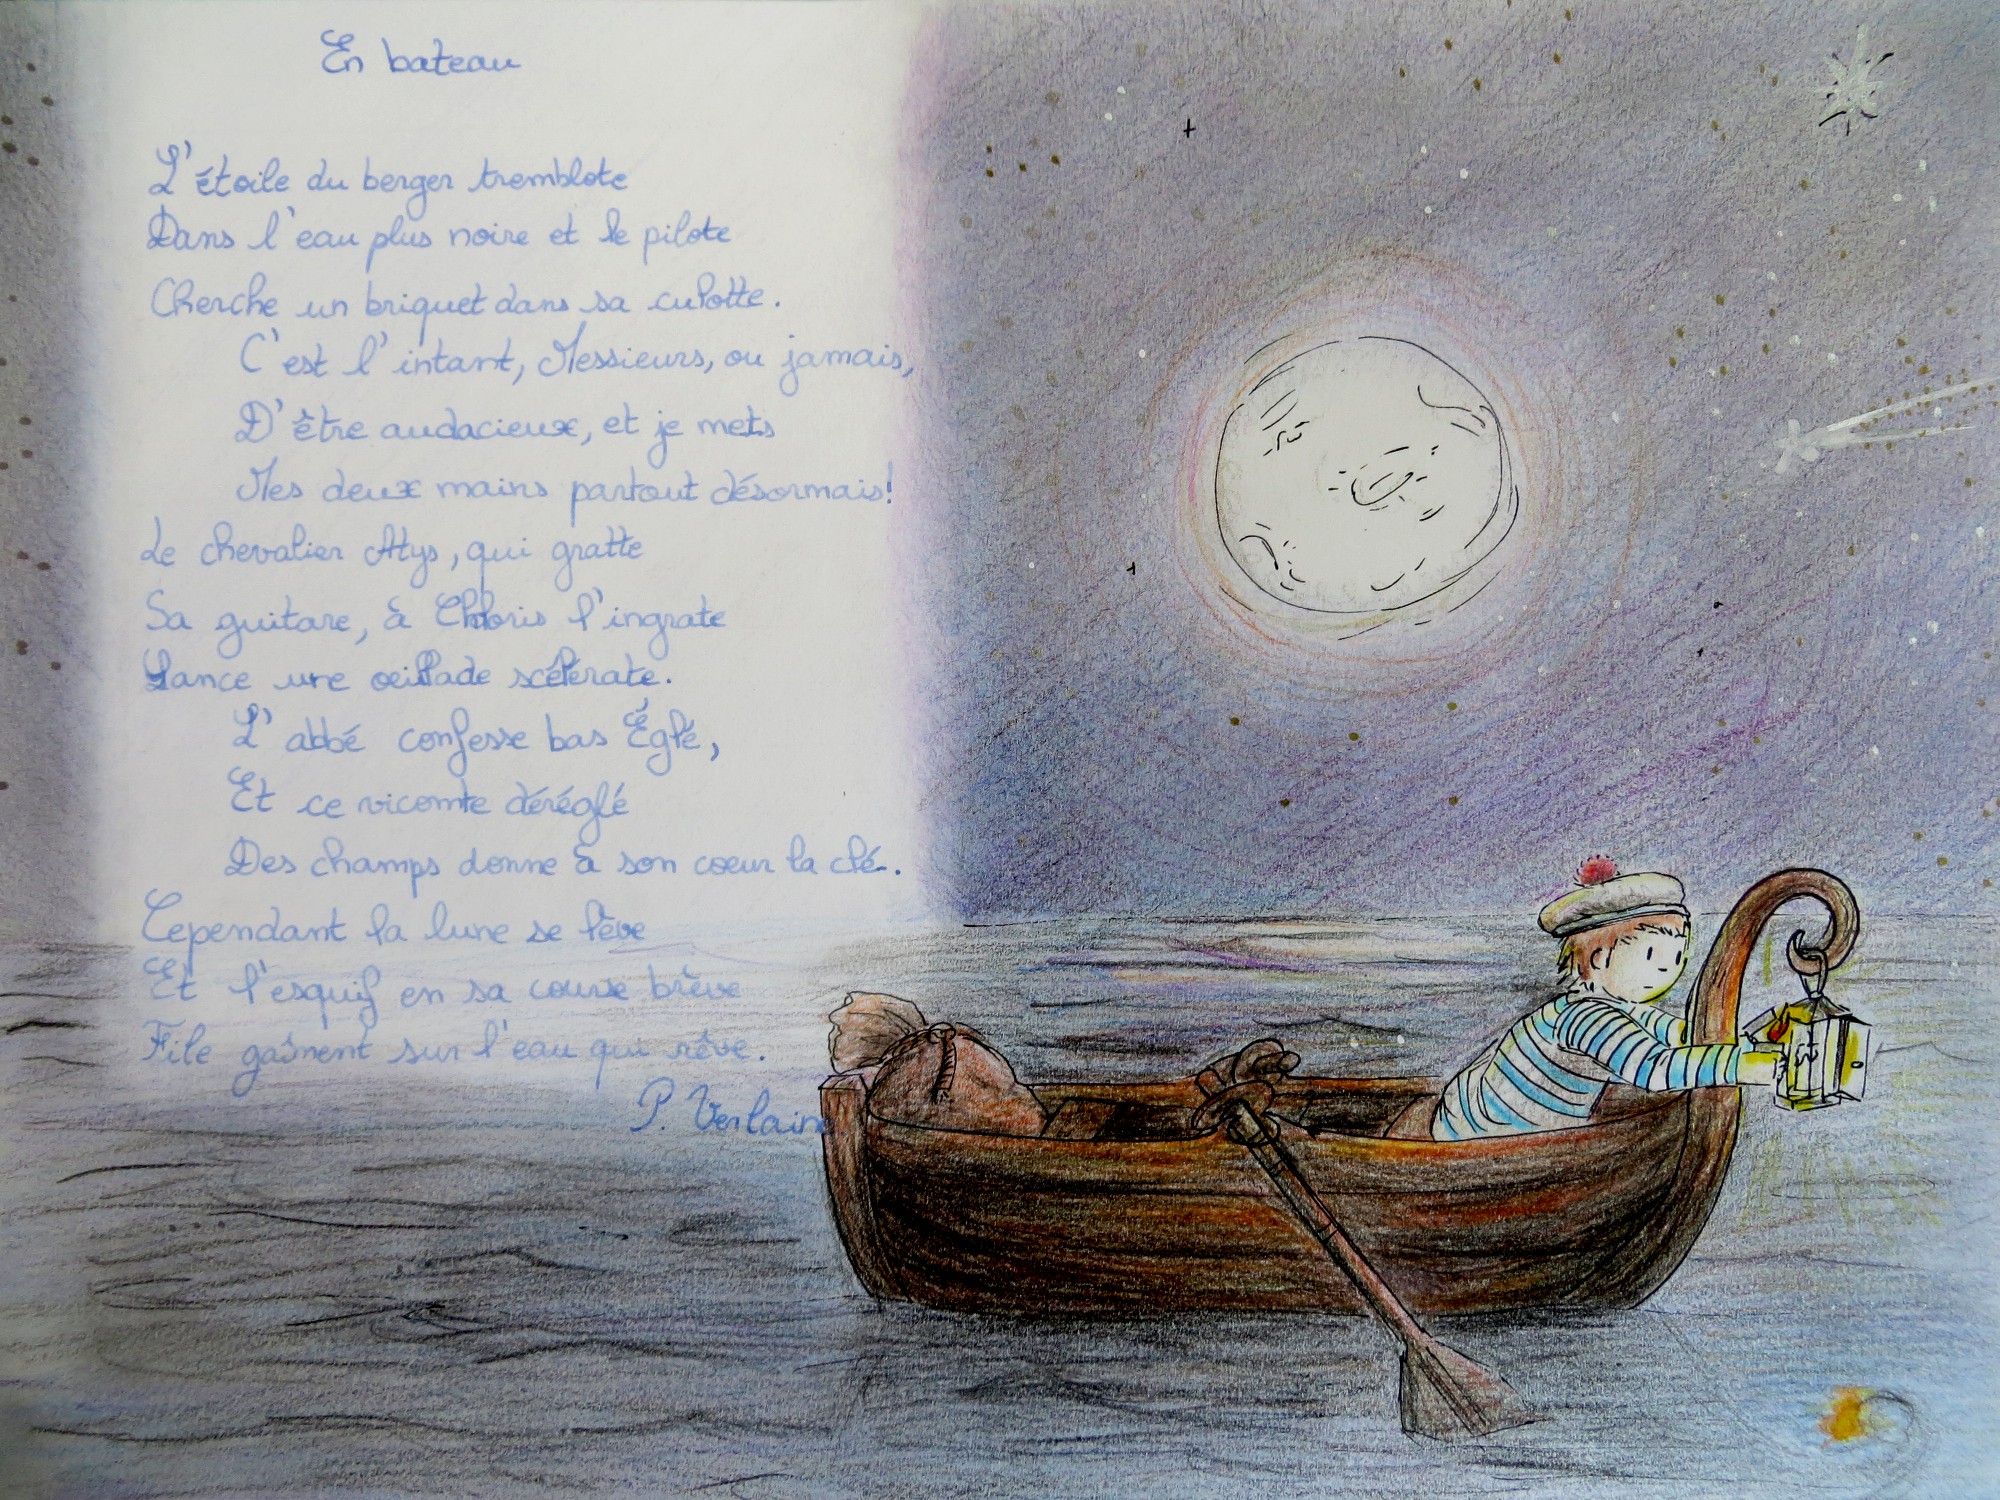 En bateau
L'étoile du berger tremblote
Dans l'eau plus noire et le pilote
Cherche un briquet dans sa culotte.
C'est l'intant, Messieurs, ou jamais,
D'être audacieux, et je mets
Mes deux mains partout désormais!
Le chevalier Atys, qui gratte
Sa guitare, à Chloris l'ingrate
Lance une oeillade scélérate.
L'abbé confesse bas Églé,
Et ce vicomte déréglé
Des champs donne à son coeur la clé.
Cependant la lune se lève
Et l'esquif en sa course brève
File gaîment sur l'eau qui rêve.
P. Verlaine